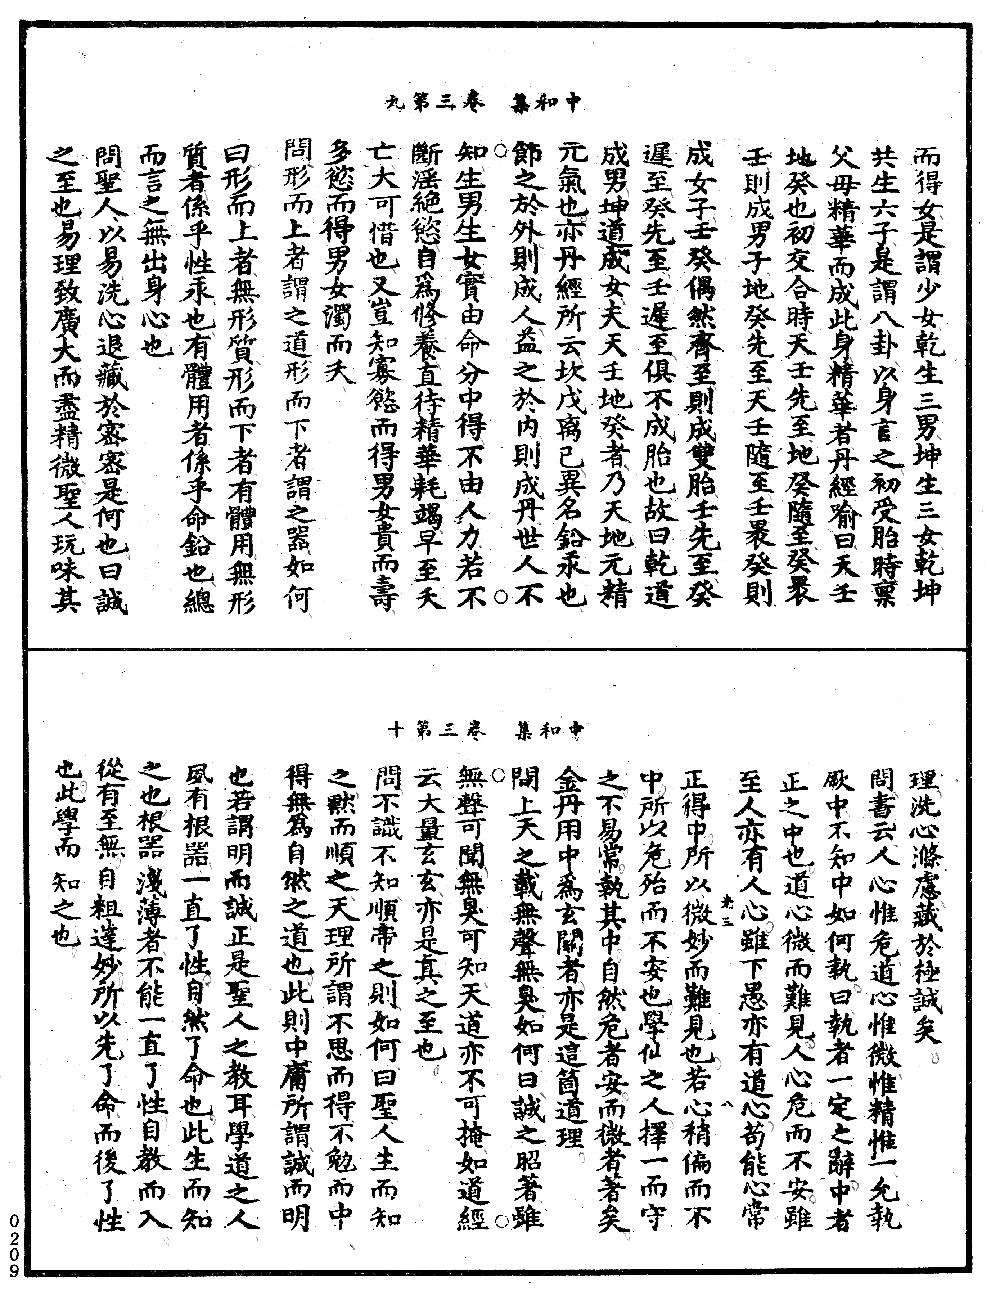 中和集　卷三第九
而得女是謂少女乾生三男坤生三女乾坤
共生六子是謂八卦以身言之初受胎時稟
父母精華而成此身精華者丹經喻曰天壬
地癸也初交合時天壬先至地癸隨至癸裹
壬則成男子地癸先至天壬隨至壬裹癸則
成女子壬癸偶然齊至則成雙胎壬先至癸
遲至癸先至壬遲至俱不成胎也故曰乾道
成男坤道成女夫天壬地癸者乃天地元精
元氣也亦丹經所云坎戊离己異名鉛汞也
節之於外則成人益之於内則成丹世人不
知生男生女實由命分中得不由人力若不
斷淫絕慾自為修養直待精華耗竭早至夭
亡大可惜也又豈知寡慾而得男女貴而壽
多慾而得男女濁而夭
問形而上者謂之道形而下者謂之器如何
曰形而上者無形質形而下者有體用無形
質者係乎性汞也有體用者係乎命鉛也總
而言之無出身心也
問聖人以易洗心退藏於密密是何也曰誠
之至也易理致廣大而盡精微聖人玩味其
中和集　卷三第十
理洗心滌慮藏於極誠矣
問書云人心惟危道心惟微惟精惟一允執
厥中不知中如何執曰執者一定之辭中者
正之中也道心微而難見人心危而不安雖
至人亦有人心雖下愚亦有道心苟能心常
正得中所以微妙而難見也若心稍偏而不
中所以危殆而不安也學仙之人擇一而守
之不易常執其中自然危者安而微者著矣
金丹用中為玄關者亦是這箇道理
問上天之載無聲無臭如何曰誠之昭著雖
無聲可聞無臭可知天道亦不可掩如道經
云大量玄玄亦是真之至也
問不識不知順帝之則如何曰聖人生而知
之默而順之天理所謂不思而得不勉而中
得無為自然之道也此則中庸所謂誠而明
也若謂明而誠正是聖人之教耳學道之人
夙有根器一直了性自然了命也此生而知
之也根器淺薄者不能一直了性自教而入
從有至無自粗達妙所以先了命而後了性
也此學而知之也
0209